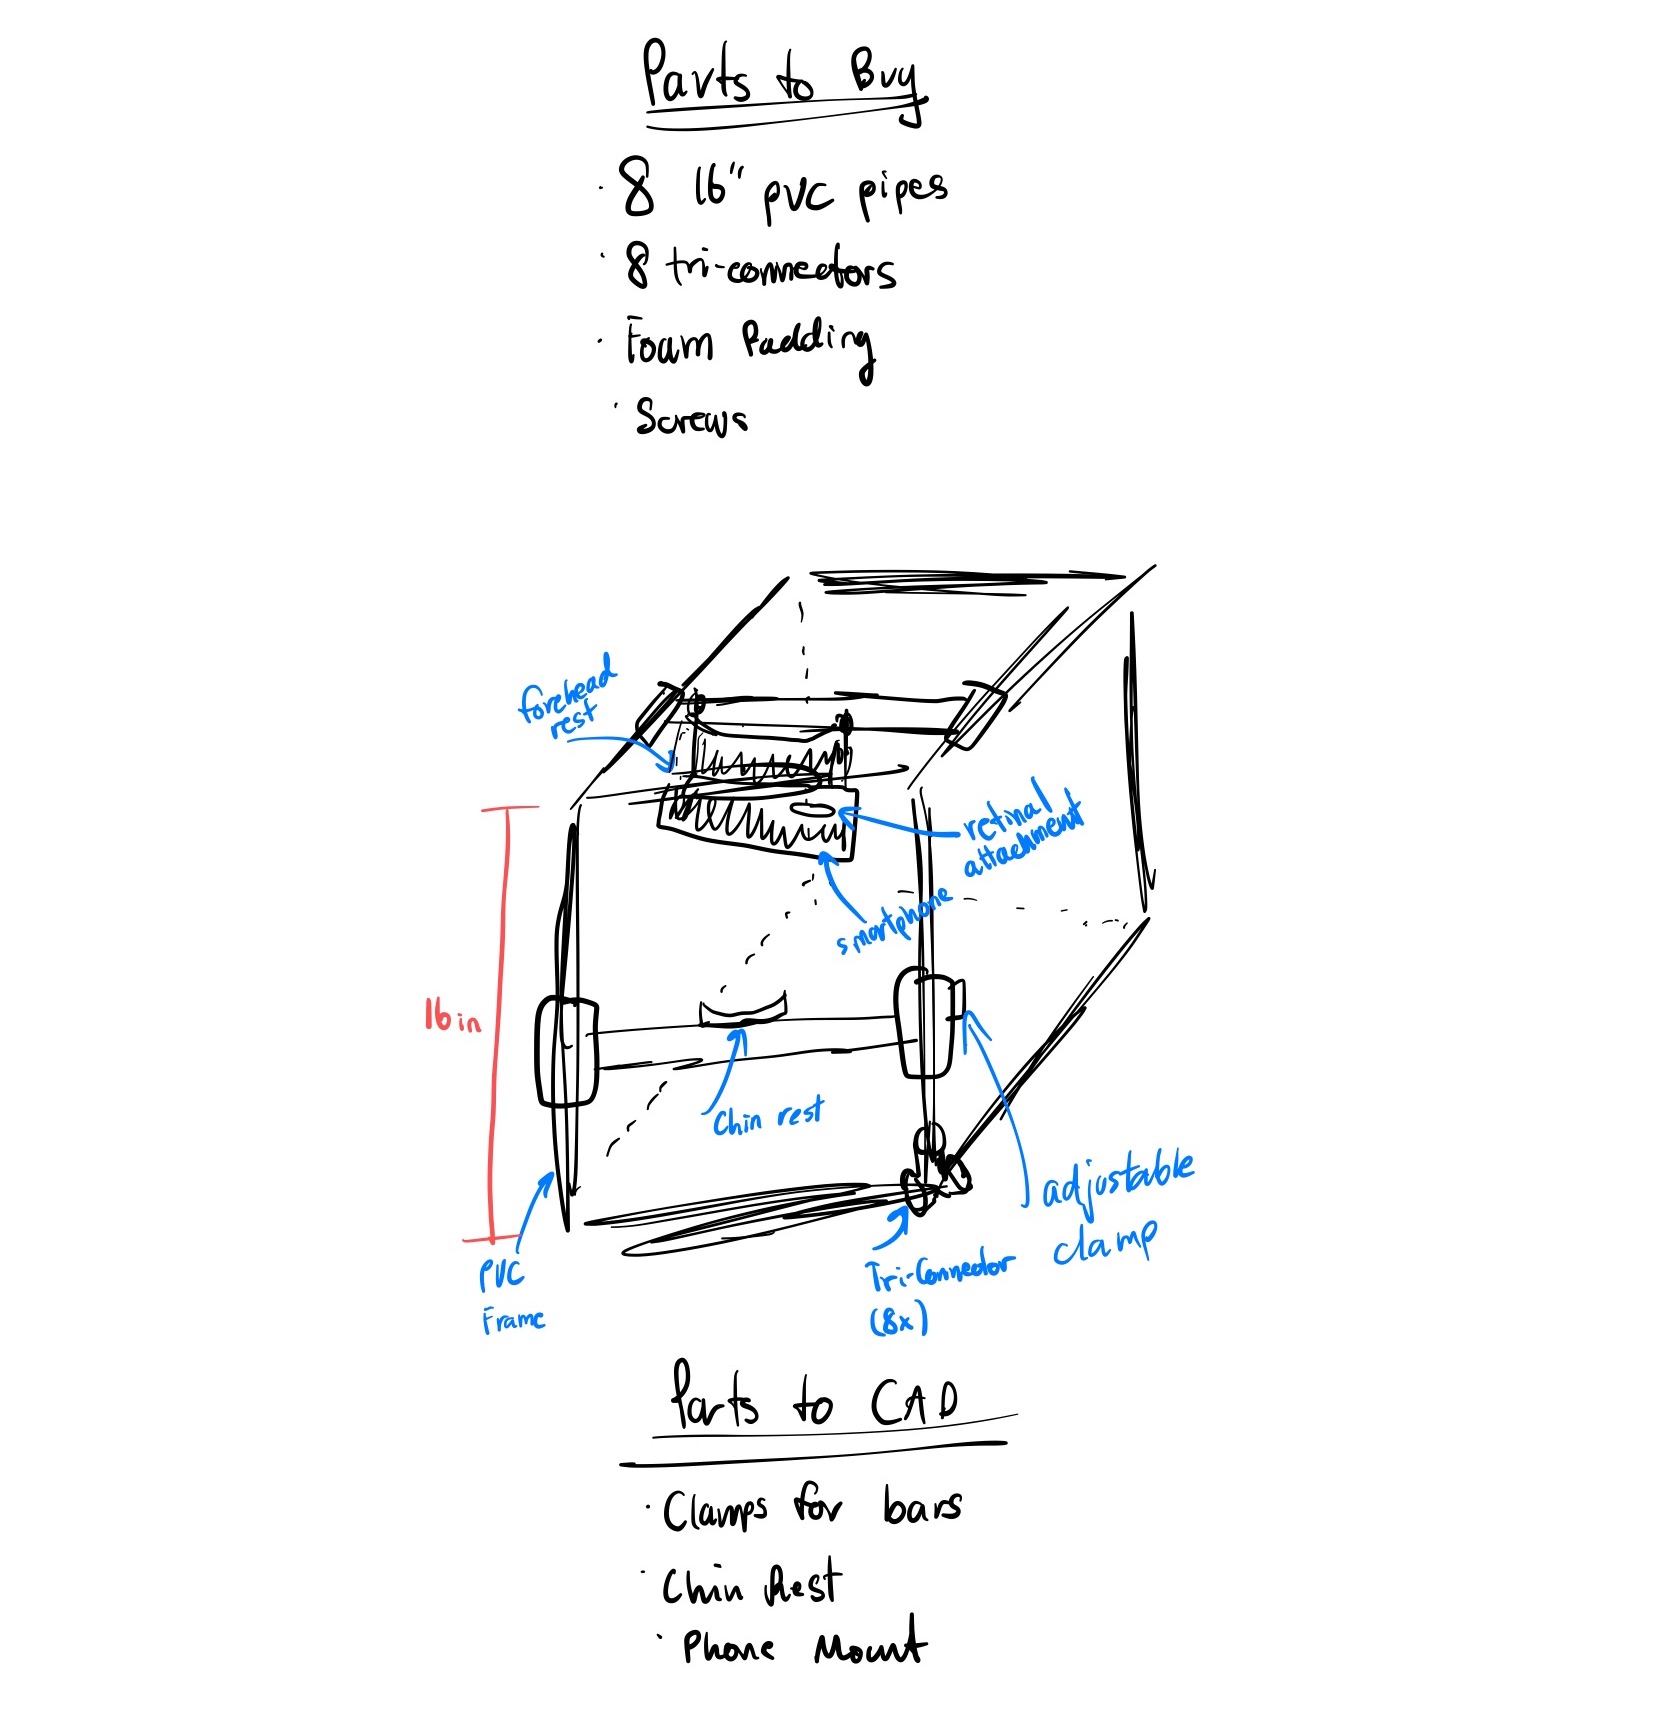 Parts to Buy
· 8 16" pvc pipes
· 8 tri-connectors
· Foam Padding
· Screws
forehead
rest
retinal
attachment
smartphone
16 in
Chin rest
adjustable
clamp
PVC
Frame
Tri-Connector
(8x)
Parts to CAD
· Clamps for bars
· Chin Rest
· Phone Mount